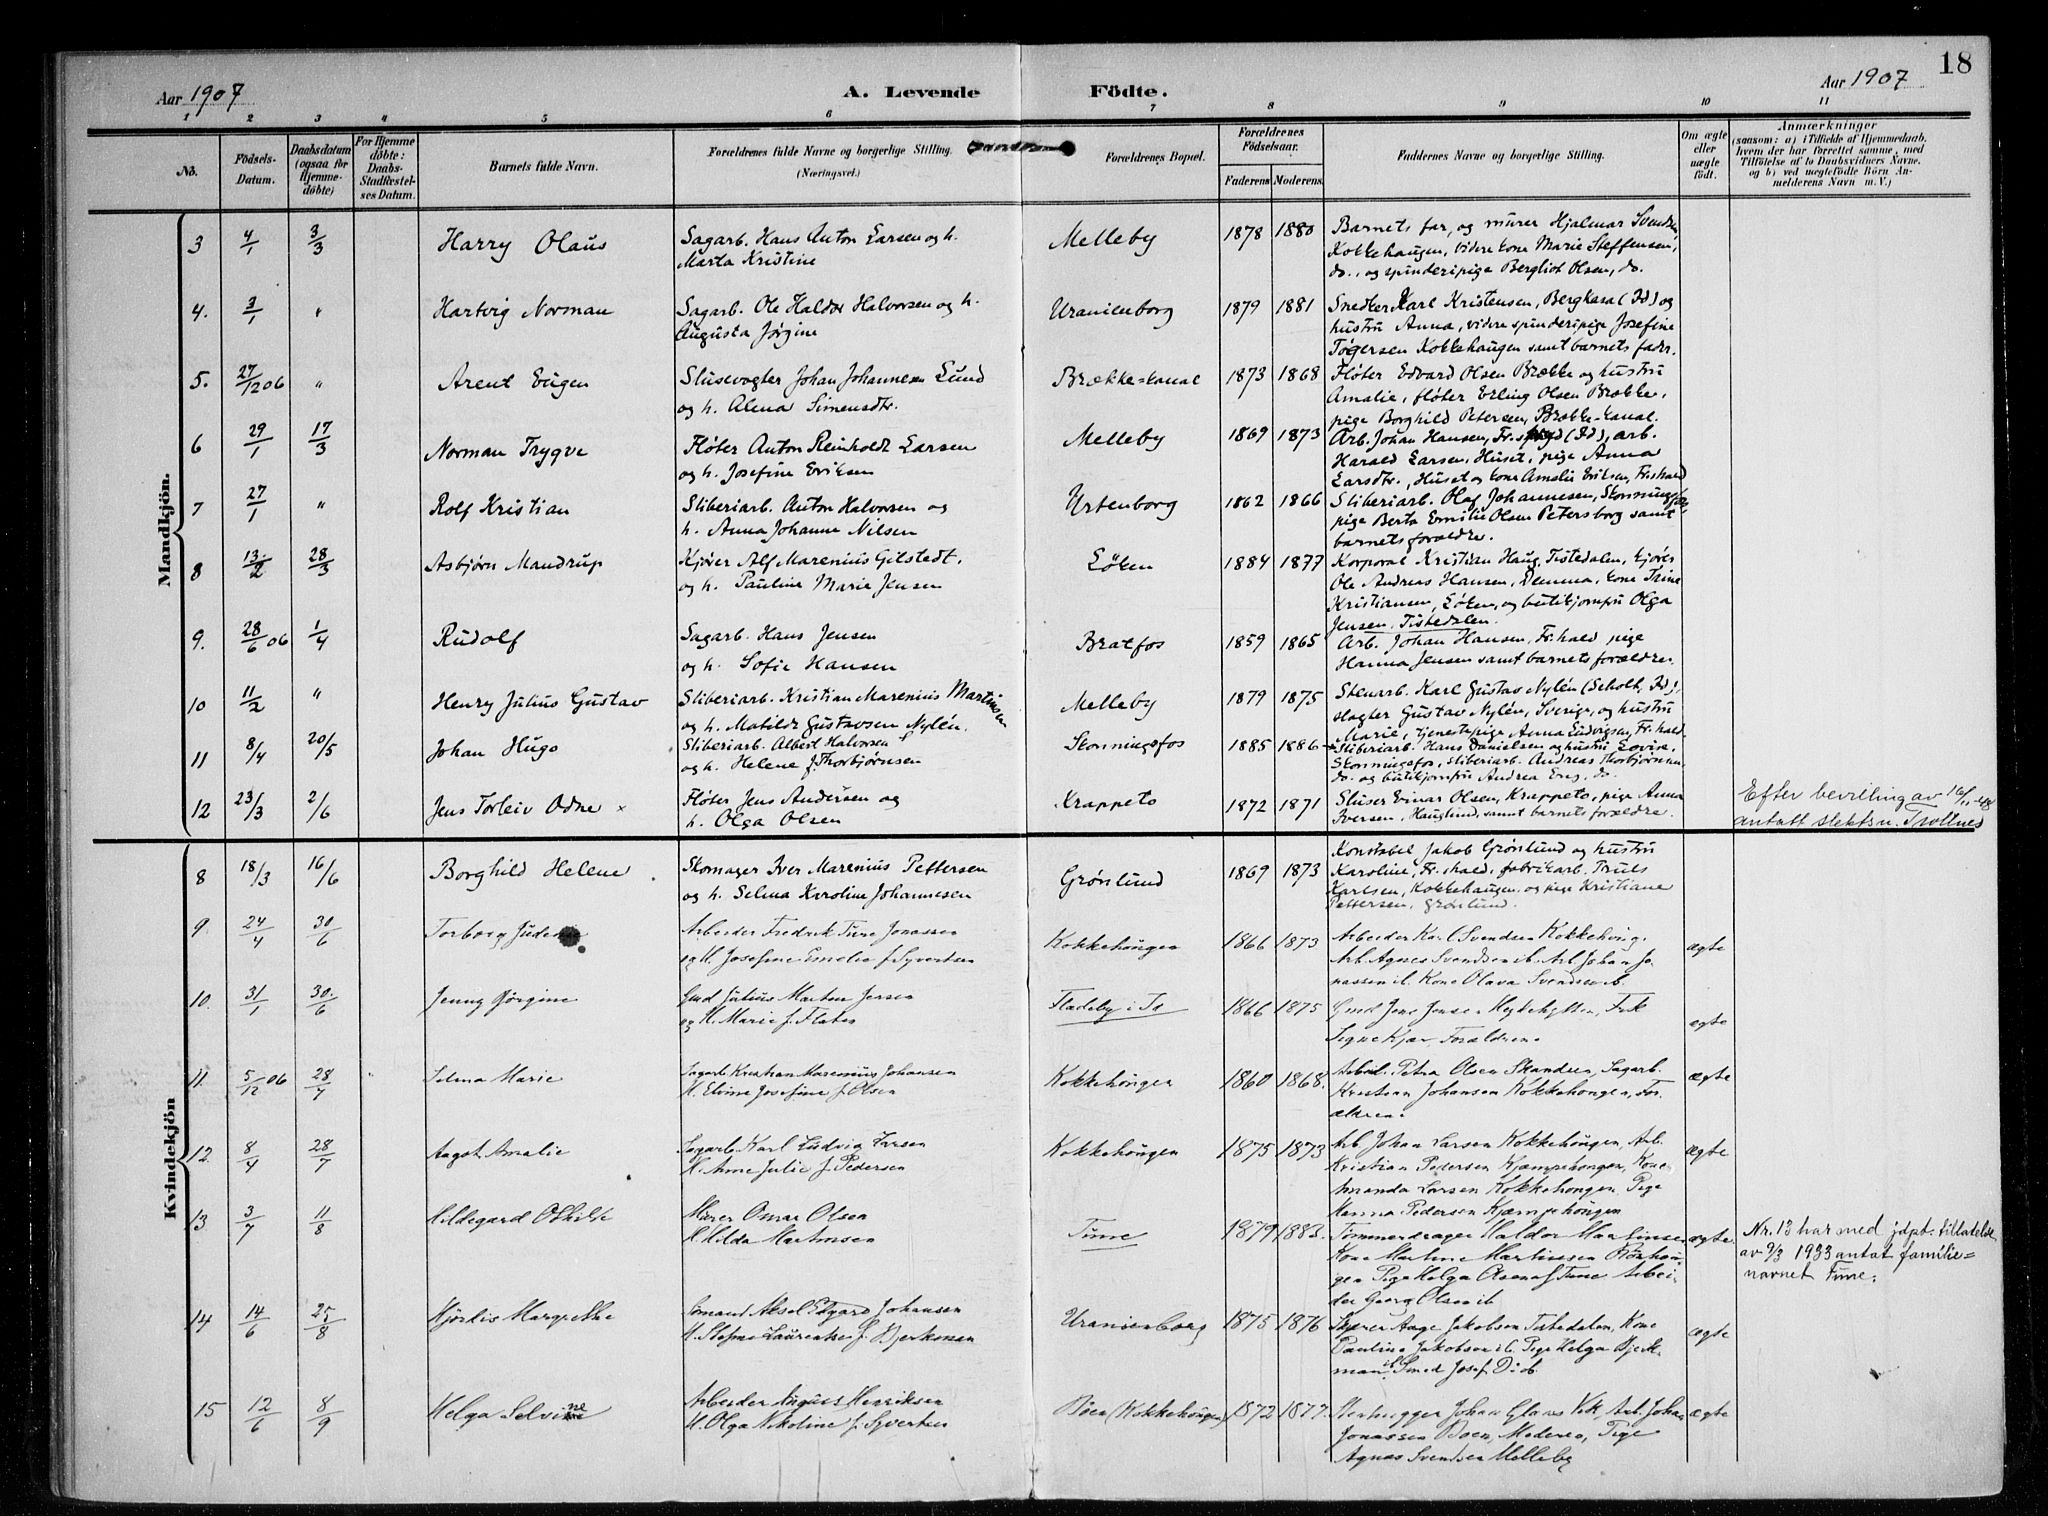 18
Aar 1907 A. Levende Födte. Aar 1907
1 2 3 4 5 6 7 8 9 10 11
No. Födsels-Datum. Daabsdatum (ogsaa for Hjemme-döbte) For Hjemme döbte: Daabs-Stadfæstel-ses Datum. Barnets fulde Navn. Forældrenes fulde Navne og borgerlige Stilling. (Næringsvei.) Forældrenes Bopæl. Forældrenes Födselsaar. Faderens Moderens Faddernes Navne og borgerlige Stilling. Om ægte eller uægte födt. Anmærkninger (saasom: a) i Tilfælde af Hjemmedaab, hvem der har forrettet samme, med Tilföielse af to Daabsvidners Navne. og b) ved uægtefödte Börn An-melderens Navn m. V.)
Mandkjön.
3 4/1 3/3 Harry Olaus Sagarb. Hans Anton Larsen og h. Melleby 1878 1880 Barnets far, og murer Hjalmar Svendsen
Marta Kristine Kokkehaugen, videre kone Marie Steffensen,
do., og spinderipige Bergliot Olsen, do.
4. 3/1 " Hartvig Norman Sagarb. Ole Haldor Halvorsen og h. Uranienborg 1879 1881 Snedker Karl Kristensen, Bergkasa (Id) og
Augusta Jørgine hustru Anna, videre spinderipige Josefine
Tøgersen Kokkehaugen samt barnets fader.
5. 27/12 06 " Arent Eugen Slusevogter Johan Johannesen Lund Brække-kanal 1873 1868 Fløter Edvard Olsen Brække og hustru
og h. Alena Simensdtr. Amalie, fløter Erling Olsen Brække,
pige Borghild Petersen, Brække-kanal.
6 29/1 17/3 Norman Trygve Fløter Anton Reinholdt Larsen Melleby 1869 1873 Arb. Johan Hansen, (Id), arb.
og h. Josefine Eriksen Harald Larsen, Huset, pige Anna
Larsdtr., Huset og kone Amalie Eriksen, Fr.hald
7 27/1 " Rolf Kristian Sliberiarb. Anton Halvorsen og Urtenborg 1862 1866 Sliberiarb. Olaf Johannesen, Skonningsfos,
h. Anna Johanne Nilsen pige Berta Emilie Olsen Petersborg samt
barnets forældre.
8 13/2 28/3 Asbjørn Mandrup Kjører Alf Marenius Gilstedt. Löken 1884 1877 Korporal Kristian Haug, Tistedalen, kjører
og h. Pauline Marie Jensen Ole Andreas Hansen, Demma, kone Trine
Kristiansen, Löken, og butikjomfru Olga
Jensen, Tistedalen.
9. 28/6 06 1/4 Rudolf Sagarb. Hans Jensen Bratfos 1859 1865 Arb. Johan Hansen, Fr.hald, pige
og h. Sofie Hansen Hanna Jensen samt barnets forældre.
10 11/2 " Henry Julius Gustav Sliberiarb. Kristian Marenius Martinsen Melleby 1879 1875 Stenarb. Karl Gustav Nylén (Scholt, Id),
og h. Matilde Gustavsen Nylén. slagter Gustav Nylén, Sverige, og hustru
Marie, tjenestepige Anna Ludvigsen, Fr.hald.
11 8/4 20/5 Johan Hugo Sliberiarb. Albert Halvorsen Skonningsfos 1885 1886 Sliberiarb. Hans Danielsen og hustru Lovise,
og h. Helene f. Thorbjørnsen Skonningsfos, sliberiarb. Andreas Thorbjørnsen,
do. og butikjomfru Andrea Eng, do.
12 23/3 2/6 Jens Torleiv Odne × Fløter Jens Andersen og Krappeto 1872 1871 Sluser Einar Olsen, Krappeto, pige Anna Efter bevilling av
h. Olga Olsen Iversen, Hauglund, samt barnets forældre. antatt slektsn. Trollnes
Kvindekjön
8 18/3 16/6 Borghild Helene Skomager Iver Marenius Pettersen Grønlund 1869 1873 Konstabel Jakob Grønlund og hustru
og h. Selma Karoline Johannesen Karoline, Fr.hald, fabrikarb. Truls
Karlsen, Kokkehaugen og pige Kristiane
Pettersen, Grønlund.
9. 24/4 30/6 Torborg Arbeider Fredrik Ture Jonassen Kokkehaugen 1866 1873 Arbeider Karl Svendsen Kokkehaug. ægte
og H. Josefine Emelie f. Syvertsen Arb. Agnes Svendsen ib. Arb. Johan Jo-
nassen ib. Kone Olava Svendsen ib.
10. 31/1 30/6 Jenny Jørgine Gmd Julius Morten Jensen Fladeby i Id 1866 1875 Gmd Jens Jensen ægte
og H. Marie f. Signe Kjær, Forældrene
11. 5/12 06 28/7 Selma Marie Sagarb Kristian Marenius Johansen Kokkehaugen 1860 1868. Arbeid. Petra Olsen Skanden, Sagarb. ægte
H. Elvine Josefine f. Olsen Kristian Johansen Kokkehaugen, For-
ældrene.
12. 8/4 28/7 Aagot Amalie Sagarb Karl Ludvig Larsen Kokkehaugen 1875 1873 Arb. Johan Larsen Kokkehaugen, Arb. ægte
H. Anne Julie f. Pedersen Kristian Pedersen Kjæmpehaugen, Kone
Amanda Larsen Kokkehaugen, Pige
Hanna Pedersen Kjæmpehaugen
13 3/7 11/8 Hildegard Othilie Murer Omar Olsen Tune 1879 1883. Tømmerdrager Haldor Martinsen ægte Nr. 13 har med jdpt. tillatelse
H. Hilda Martinsen Kone Martine Martinsen av 9/3 1933 antat familie-
Pige Helga Olsen Tune Arbei- navnet Tune.
der Georg Olsen ib
14 14/6 25/8 Hjördis Margrethe Sømand Aksel Edgard Johansen Uranienborg 1875 1876 Aage Jakobsen Tistedalen, Kone ægte
H. Laurentse f. Bjerkman Pauline Jakobsen ib. Pige Helga Bjerk-
man ib. Smed Josef D. ib.
15 12/6 8/9 Helga Selvine Arbeider August Henriksen Böen (Kokkehaugen) 1872 1877. Johan Arb. Johan ægte
H. Olga Nikoline f. Syvertsen Jonassen Boen, Moderen, Pige
Agnes Svendsen Melleby